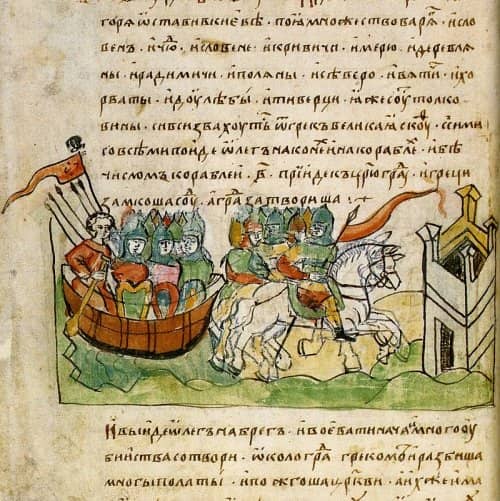 горѧ ѿставивкиевѣ · поꙗ множествоварѧ · исло
венъ · ичю · исловене · икривичи · имерю · идеревлѧ
ны · ирадимичи · иполѧны · исѣверо · ивѧти · ихо
рваты · идоулѣбы · итиверци · ꙗжесоутолко
вины · сивсизвахоуть ѿгрекъ великаꙗскоу · ссими
совсѣмипоидеѡлегъ наконеинакорабле · ибѣ
числомъ кораблеи · ҂в · прїидекъ цр҃югра · игреци
замкошасоу · аградзатвориша
ивыидеѡлегъ набрегъ · ивоеватинача многооу
биистваcотвори · ѡкологра грекомъ иразбиша
многыполаты · ипожгошацр҃кви · аихжеима